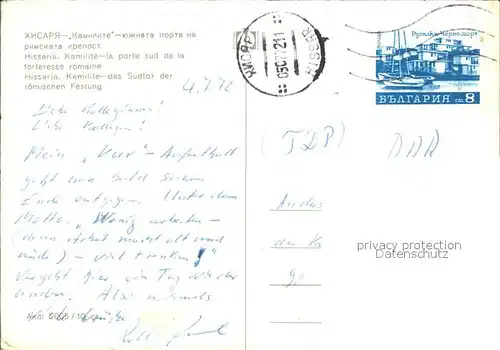 ХИСАРЯ—„Камилите"—южната порта на
римската крепост
Hissaria. Kamilite—la porte sud de la
forteresse romaine
Hissarja. Kamilite—das Südtor der
römischen Festung
4.7.72
Liebe Kolleginnen!
Liebe Kollegen!
Mein „Kur"-Aufenthalt
geht nun bald seinem
Ende entgegen. Unter dem
Motto: „Wenig arbeiten -
(denn Arbeit macht alt und
müde) - viel trinken!"
vergeht hier ein Tag wie der
andere. Also nochmals
Русалка Черно море
БЪЛГАРИЯ ст. 8
(TDP) DDR
privacy protection
Datenschutz